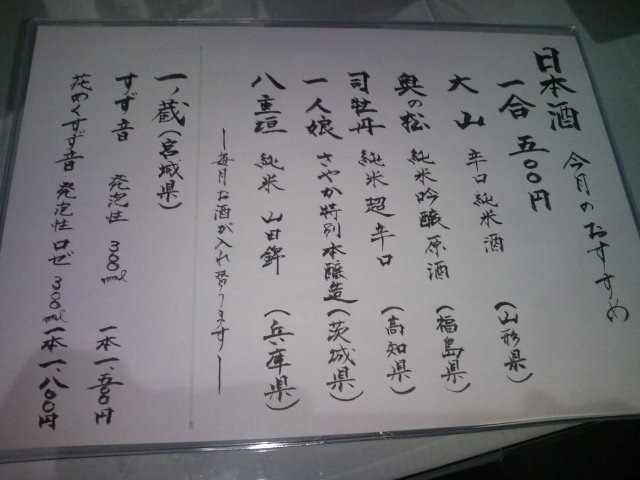 日本酒 今月のおすすめ
一合 五〇〇円
大山 辛口純米酒 (山形県)
奥の松 純米吟醸原酒 (福島県)
司牡丹 純米超辛口 (高知県)
一人娘 さやか特別本醸造 (茨城県)
八重垣 純米 山田錦 (兵庫県)
ー毎月お酒が入れ替りますー
一ノ蔵 (宮城県)
すず音 発泡性 300ml 一本 一、五〇〇円
花めくすず音 発泡性ロゼ 300ml 一本 一、八〇〇円